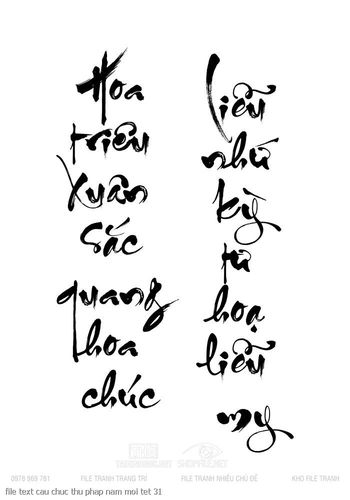 Hoa
triêu
Xuân
sắc
quang
hoa
chúc
liễu
như
kỳ
tứ
hoạ
liễu
my
SHOPFILE.NET
0978 969 761 FILE TRANH TRANG TRÍ FILE TRANH NHIỀU CHỦ ĐỀ KHO FILE TRANH
file text cau chuc thu phap nam moi tet 31